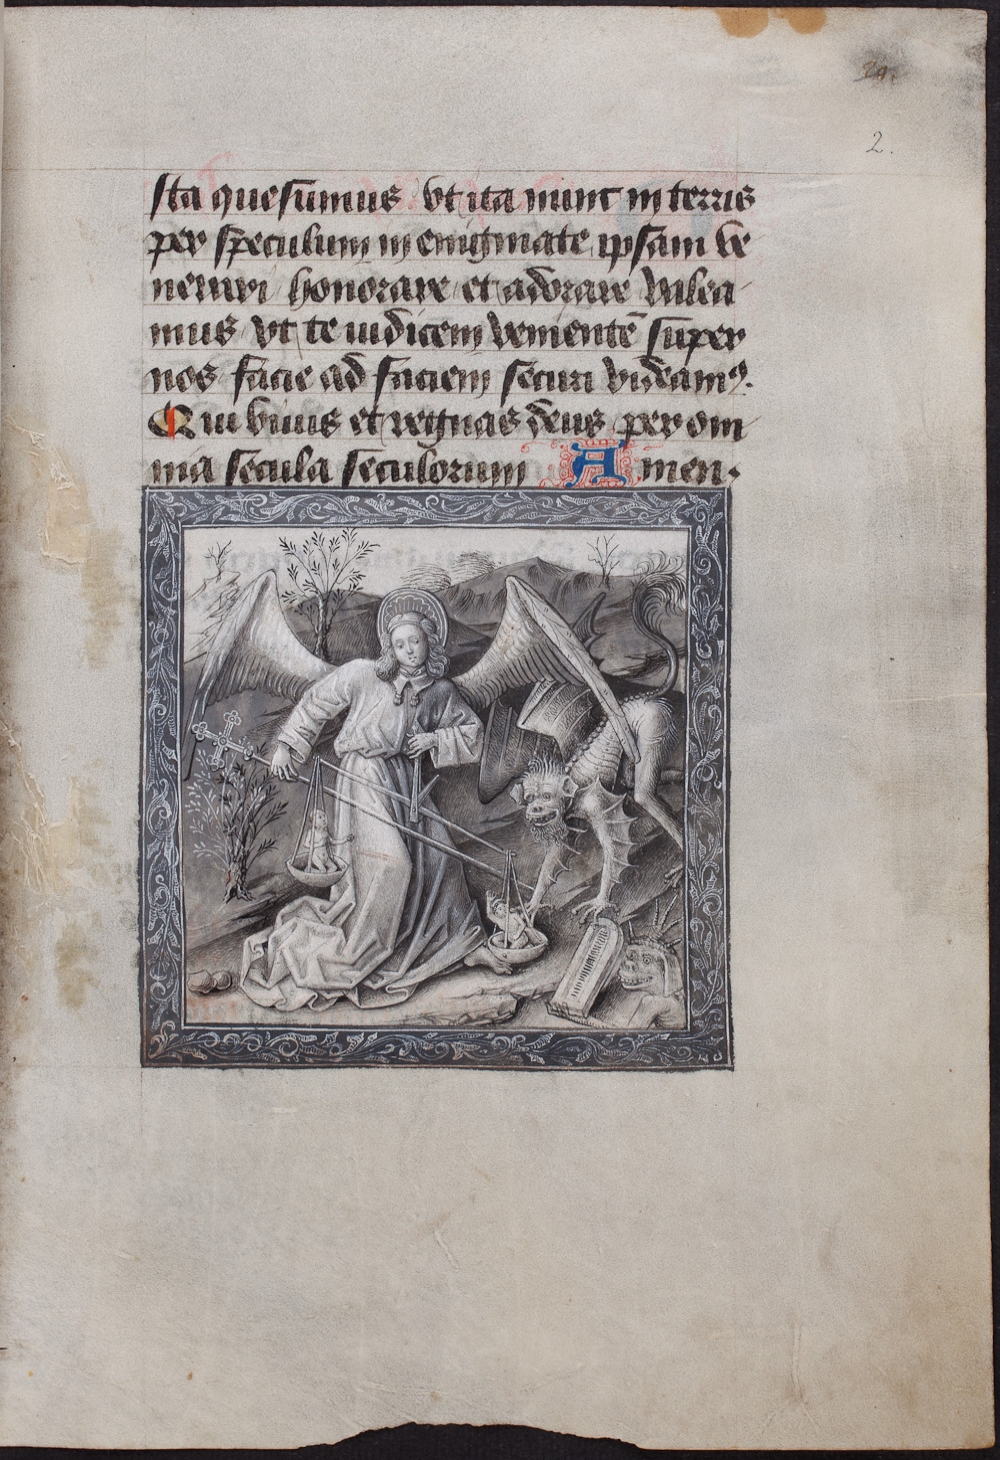 2.
sta quesumus vt ita nunc in terris
per speculum in enigmate ipsam ve
nerari honorare et adorare valea
mus vt te iudicem venientē super
nos facie ad faciem securi videamꝰ.
Qui viuis et regnas deus per om
nia secula seculorum Amen.